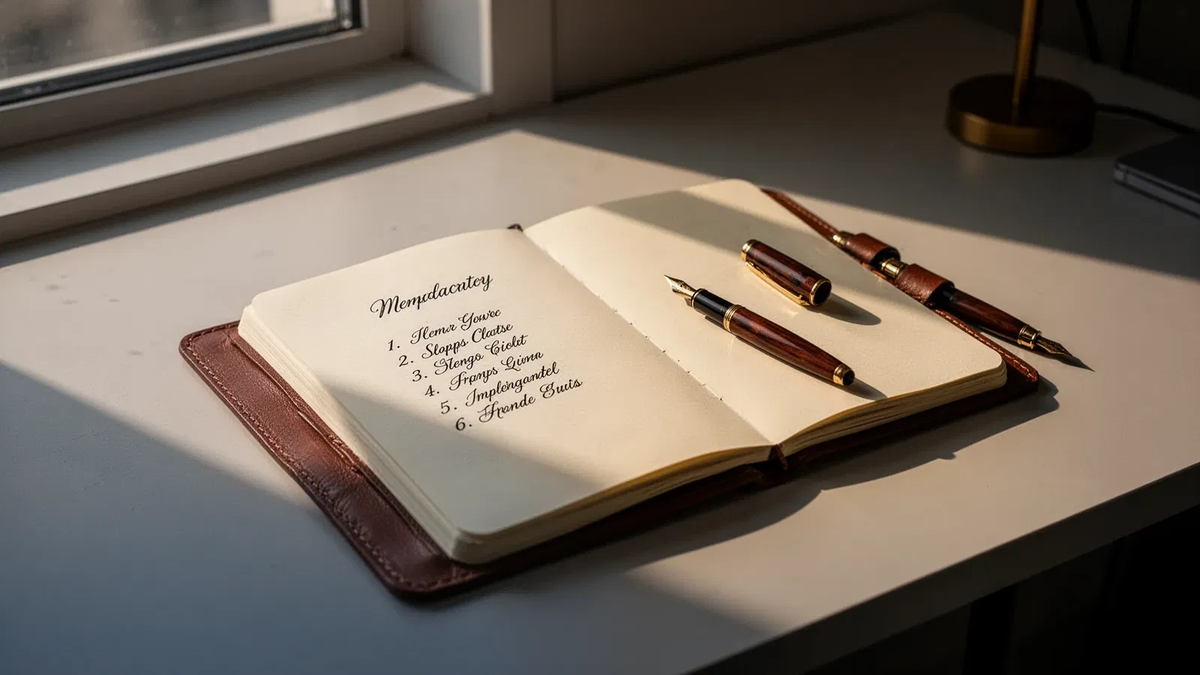 Mempdacntoy
1. Hemir Yowre
2. Slapps Clatse
3. Stengo Ciolet
4. Frpnys Givnn
5. Implengandel
6. Frande Euuis